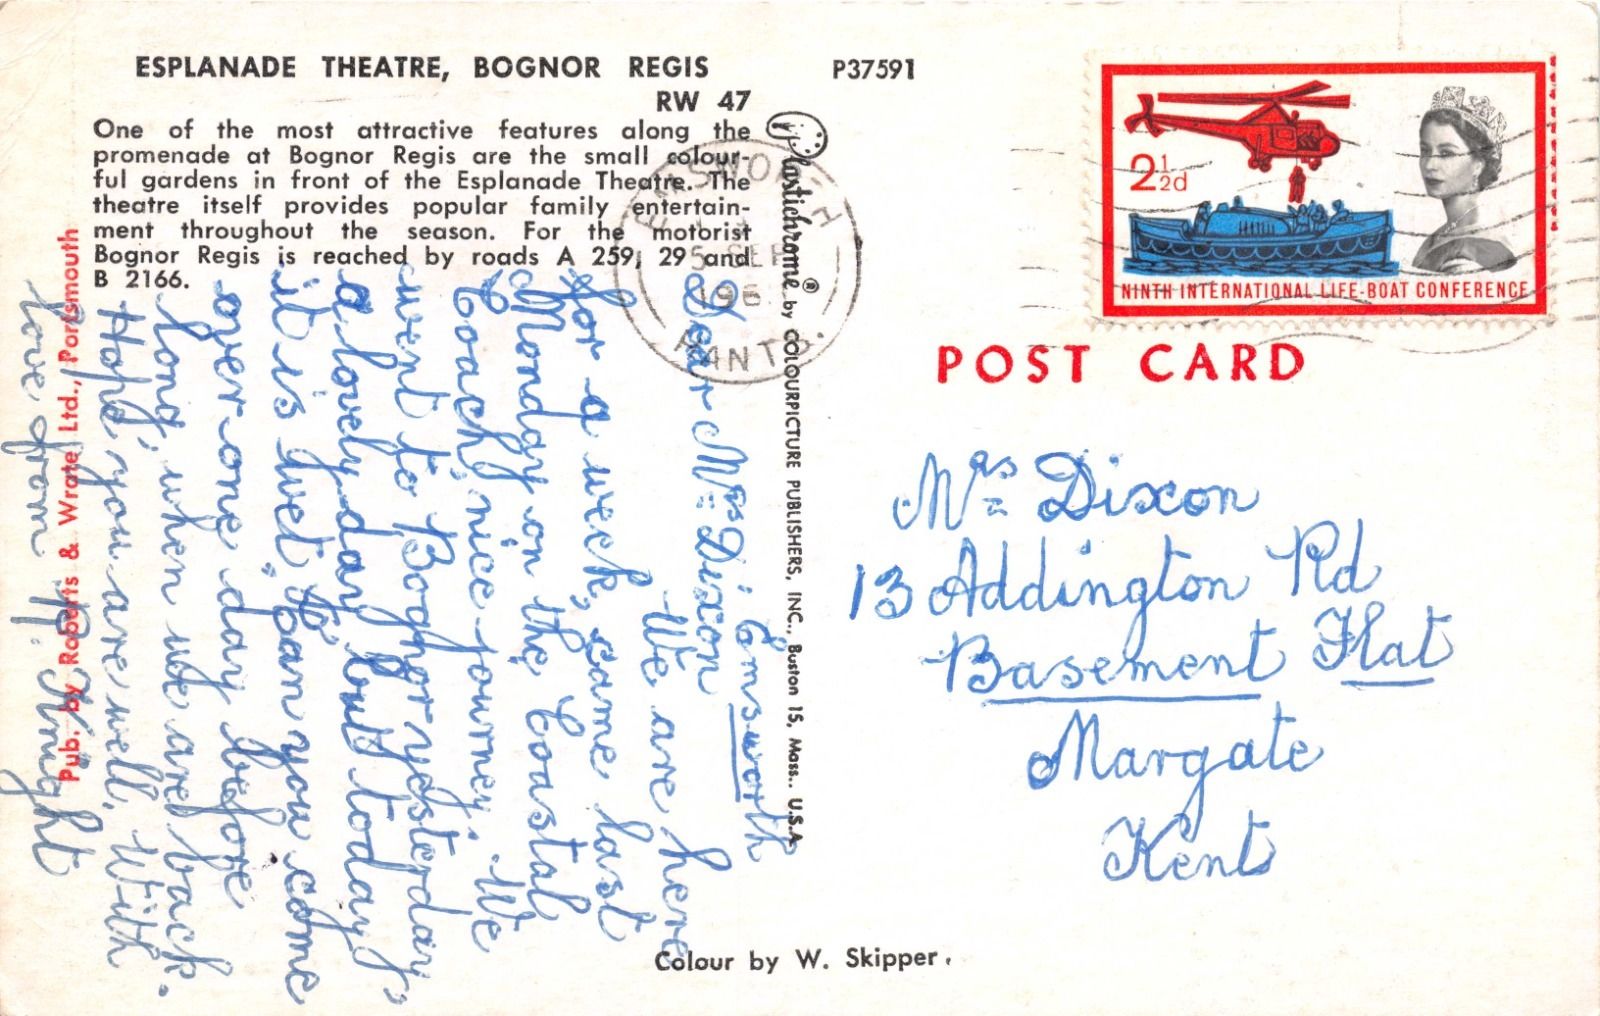 ESPLANADE THEATRE, BOGNOR REGIS
RW 47
P37591
One of the most attractive features along the
promenade at Bognor Regis are the small colour-
ful gardens in front of the Esplanade Theatre. The
theatre itself provides popular family entertain-
ment throughout the season. For the motorist
Bognor Regis is reached by roads A 259, 29 and
B 2166.
Plastichrome® by COLOURPICTURE PUBLISHERS, INC., Boston 15, Mass., U.S.A
Pub. by Roberts & Wrate Ltd., Portsmouth
EMSWORTH
5 SEP
196
HANTS.
2½d
NINTH INTERNATIONAL LIFE-BOAT CONFERENCE
POST CARD
Emsworth
Dear Mrs Dixon
We are here
for a week, came last
Monday on the Coastal
Coach, nice journey. We
went to Bognor yesterday,
a lovely day but today
it is wet, can you come
over one day before
long, when we are back.
Hope you are well. With
love from
Knight
Mrs Dixon
13 Addington Rd
Basement Flat
Margate
Kent
Colour by W. Skipper.